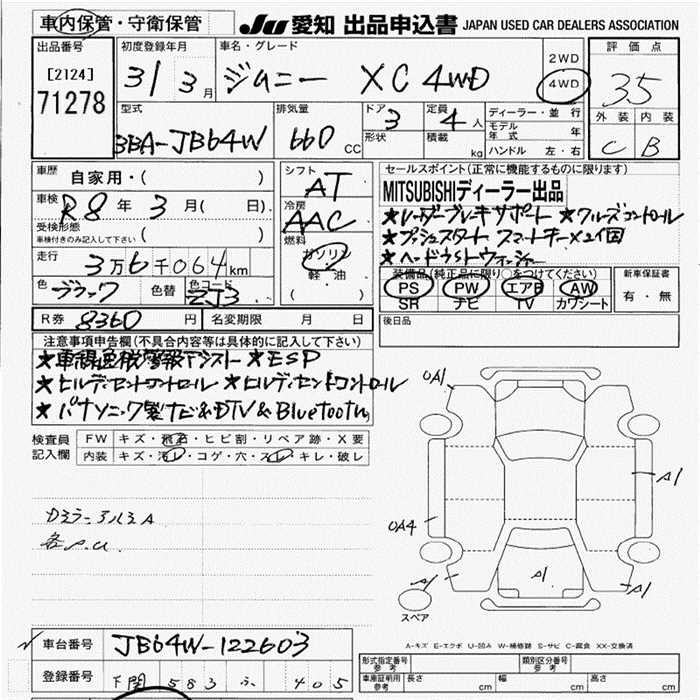 車内保管・守衛保管
JU 愛知 出品申込書 JAPAN USED CAR DEALERS ASSOCIATION
出品番号
[2124]
71278
初度登録年月
31 3月
車名・グレード
ジムニー XC 4WD
2WD
4WD
評価点
3.5
外装 内装
C B
型式
3BA-JB64W
排気量
660 CC
ドア
3
形状
定員
4人
積載
kg
ディーラー・並行
モデル年式 年
ハンドル 左・右
車歴
自家用・( )
車検
R8年 3月( 日)
受検形態
車検付きのみ記入して下さい( )
走行
3万6千064km
色
ブラック
色替
色コード
ZJ3
R券 8360円
名変期限 月 日
シフト
AT
冷房
AAC
燃料
ガソリン
軽・油
( )
セールスポイント(正常に機能するものに限ります)
MITSUBISHIディーラー出品
★レーダーブレーキサポート ★クルーズコントロール
★プッシュスタート スマートキー×2個
★ヘッドライトウォッシャー
装備品(純正品に限り○をつけてください)
PS PW エアB AW
SR ナビ TV カワシート
新車保証書
有・無
後日品
注意事項申告欄(不具合内容等は具体的に記入して下さい)
★車線逸脱警報アシスト ★ESP
★ヒルディセントコントロール ★ヒルディセントコントロール
★パナソニック製ナビ&DTV&Bluetooth
検査員記入欄
FW キズ・飛石・ヒビ割・リペア跡・X要
内装 キズ・汚レ・コゲ・穴・スレ・キレ・破レ
DミラーアルミA
各P.U.
0A1
A1
0A4
A1
A1
A1
スペア
A-キズ E-エクボ U-凹み W-補修跡 S-サビ C-腐食 XX-交換済
車台番号
JB64W-122603
登録番号
下関 583 ふ 405
形式指定番号
参考
類別区分番号
参考
車庫証明用
参考
長さ cm
幅 cm
高さ cm